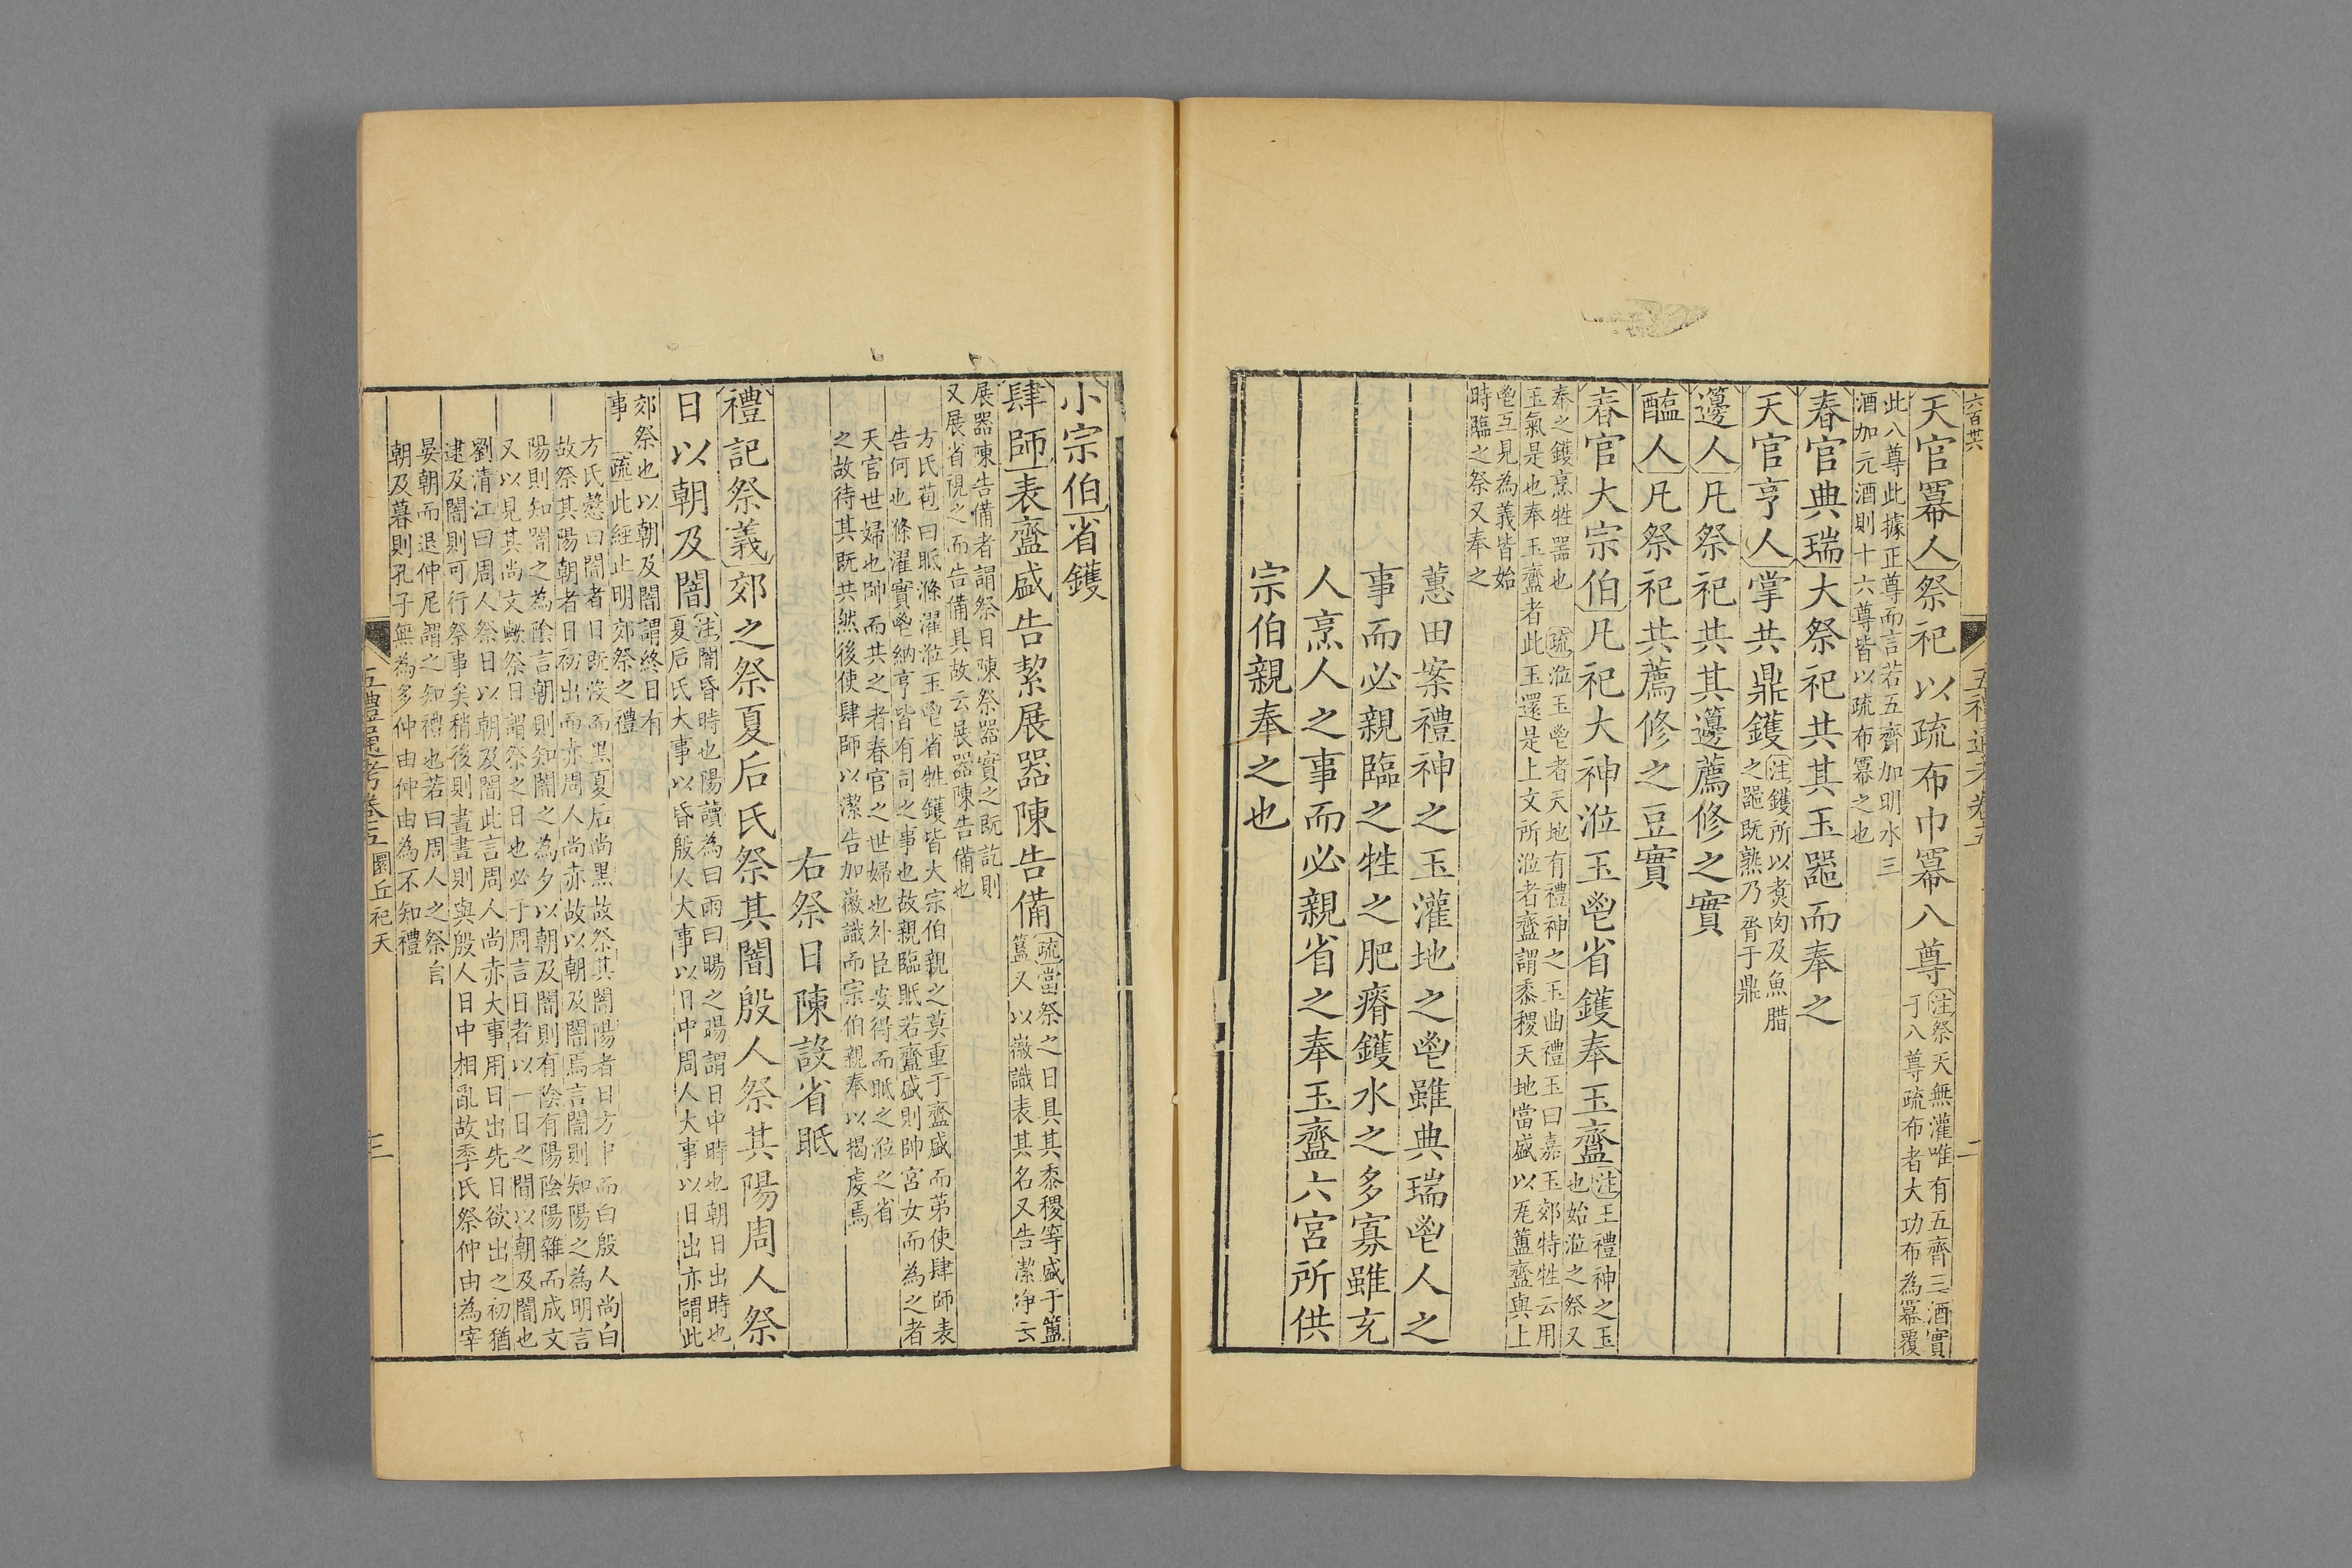 六百廿六
天官冪人祭祀以疏布巾冪八尊注祭天無灌唯有五齊三酒實
于八尊疏布者大功布為冪覆
此八尊此據正尊而言若五齊加明水三
酒加元酒則十六尊皆以疏布冪之也
春官典瑞大祭祀共其玉器而奉之
天官亨人掌共鼎鑊注鑊所以煑肉及魚腊
之器既熟乃脀于鼎
籩人凡祭祀共其籩薦修之實
醢人凡祭祀共薦修之豆實
春官大宗伯凡祀大神涖玉鬯省鑊奉玉齍注玉禮神之玉
也始涖之祭又
奉之鑊烹牲器也疏涖玉鬯者天地有禮神之玉曲禮玉曰嘉玉郊特牲云用
玉氣是也奉玉齍者此玉還是上文所涖者齍謂黍稷天地當盛以瓦簠齍與上
鬯互見為義皆始
時臨之祭又奉之
蕙田案禮神之玉灌地之鬯雖典瑞鬯人之
事而必親臨之牲之肥瘠鑊水之多寡雖充
人烹人之事而必親省之奉玉齍六宮所供
宗伯親奉之也
小宗伯省鑊
肆師表齍盛告絜展器陳告備疏當祭之日具其黍稷等盛于簠
簋又以徽識表其名又告潔净云
展器陳告備者謂祭日陳祭器實之既訖則
又展省視之而告備具故云展器陳告備也
方氏苞曰眡滌濯涖玉鬯省牲鑊皆大宗伯親之莫重于齍盛而弟使肆師表
告何也滌濯實鬯納亨皆有司之事也故親臨眡若齍盛則帥宮女而為之者
天官世婦也帥而共之者春官之世婦也外臣安得而眡之涖之省
之故待其既共然後使肆師以潔告加徽識而宗伯親奉以揭虔焉
右祭日陳設省眡
禮記祭義郊之祭夏后氏祭其闇殷人祭其陽周人祭
日以朝及闇注闇昏時也陽讀為曰雨曰暘之暘謂日中時也朝日出時也
夏后氏大事以昏殷人大事以日中周人大事以日出亦謂此
郊祭也以朝及闇謂終日有
事疏此經止明郊祭之禮
方氏慤曰闇者日既沒而黑夏后尚黑故祭其闇陽者日方中而白殷人尚白
故祭其陽朝者日初出而亦周人尚赤故以朝及闇焉言闇則知陽之為明言
陽則知闇之為陰言朝則知闇之為夕以朝及闇則有陰有陽陰陽雜而成文
又以見其尚文歟祭日謂祭之日也必于周言日者以一日之間以朝及闇也
劉清江曰周人祭日以朝及闇此言周人尚赤大事用日出先日欲出之初猶
逮及闇則可行祭事矣稍後則晝晝則與殷人日中相亂故季氏祭仲由為宰
晏朝而退仲尼謂之知禮也若曰周人之祭自
朝及暮則孔子無為多仲由仲由為不知禮
五禮通考卷五圜丘祀天
三